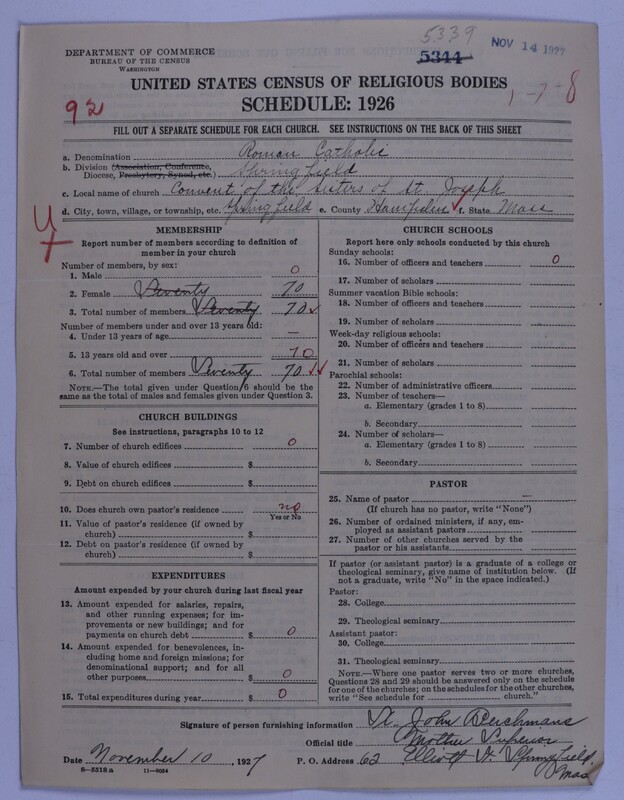 5339
5344
NOV 14 1927
DEPARTMENT OF COMMERCE
BUREAU OF THE CENSUS
WASHINGTON
UNITED STATES CENSUS OF RELIGIOUS BODIES
SCHEDULE: 1926
92
1-7-8
FILL OUT A SEPARATE SCHEDULE FOR EACH CHURCH. SEE INSTRUCTIONS ON THE BACK OF THIS SHEET
a. Denomination Roman Catholic
b. Division (Association, Conference, Diocese, Presbytery, Synod, etc.) Springfield
c. Local name of church Convent of the Sisters of St. Joseph
d. City, town, village, or township, etc. Springfield e. County Hampden f. State Mass
U
MEMBERSHIP
Report number of members according to definition of
member in your church
Number of members, by sex:
1. Male 0
2. Female Seventy 70
3. Total number of members Seventy 70
Number of members under and over 13 years old:
4. Under 13 years of age —
5. 13 years old and over 70
6. Total number of members Seventy 70
NOTE.—The total given under Question 6 should be
same as the total of males and females given under Question 3.
CHURCH BUILDINGS
See instructions, paragraphs 10 to 12
7. Number of church edifices 0
8. Value of church edifices $
9. Debt on church edifices $
10. Does church own pastor's residence no
Yes or No
11. Value of pastor's residence (if owned by
church) $
12. Debt on pastor's residence (if owned by
church) $
EXPENDITURES
Amount expended by your church during last fiscal year
13. Amount expended for salaries, repairs,
and other running expenses; for im-
provements or new buildings; and for
payments on church debt $ 0
14. Amount expended for benevolences, in-
cluding home and foreign missions; for
denominational support; and for all
other purposes $ 0
15. Total expenditures during year $ 0
CHURCH SCHOOLS
Report here only schools conducted by this church
Sunday schools:
16. Number of officers and teachers 0
17. Number of scholars
Summer vacation Bible schools:
18. Number of officers and teachers
19. Number of scholars
Week-day religious schools:
20. Number of officers and teachers
21. Number of scholars
Parochial schools:
22. Number of administrative officers
23. Number of teachers—
a. Elementary (grades 1 to 8)
b. Secondary
24. Number of scholars—
a. Elementary (grades 1 to 8)
b. Secondary
PASTOR
25. Name of pastor —
(If church has no pastor, write "None")
26. Number of ordained ministers, if any, em-
ployed as assistant pastors
27. Number of other churches served by the
pastor or his assistants
If pastor (or assistant pastor) is a graduate of a college or
theological seminary, give name of institution below. (If
not a graduate, write "No" in the space indicated.)
Pastor:
28. College
29. Theological seminary
Assistant pastor:
30. College
31. Theological seminary
NOTE.—Where one pastor serves two or more churches,
Questions 28 and 29 should be answered only on the schedule
for one of the churches; on the schedules for the other churches,
write "See schedule for church."
Signature of person furnishing information St. John Berchmans
Official title Mother Superior
Date November 10, 1927 P. O. Address 62 Elliott St. Springfield,
Mass
8-5518a 11-9054